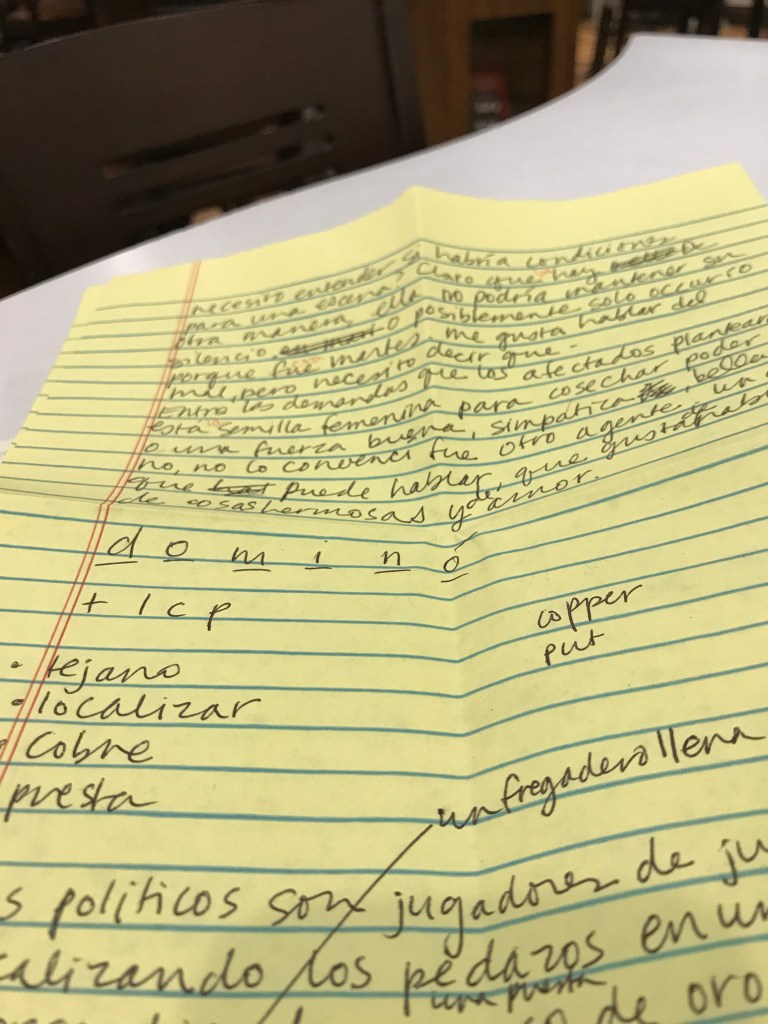 necesito entender si habría condiciones
para una escena, claro que hay
otra manera, ella no podría mantener su
silencio, o posiblemente solo ocurrió
porque fue martes me gusta hablar del
mal, pero necesito decir que -
Entre las demandas que los afectados plantearon
esta semilla femenina para cosechar poder
o una fuerza buena, simpática, bella
no, no lo convencí fue otro agente, un
que puede hablar, que gusta
de cosas hermosas y de amor.
d o m i n ó
t l c p
copper
put
• tejano
• localizar
• cobre
puesta
un fregadero llena
s políticos son jugadores de ju
calizando los pedazos en un
una puesta
de oro